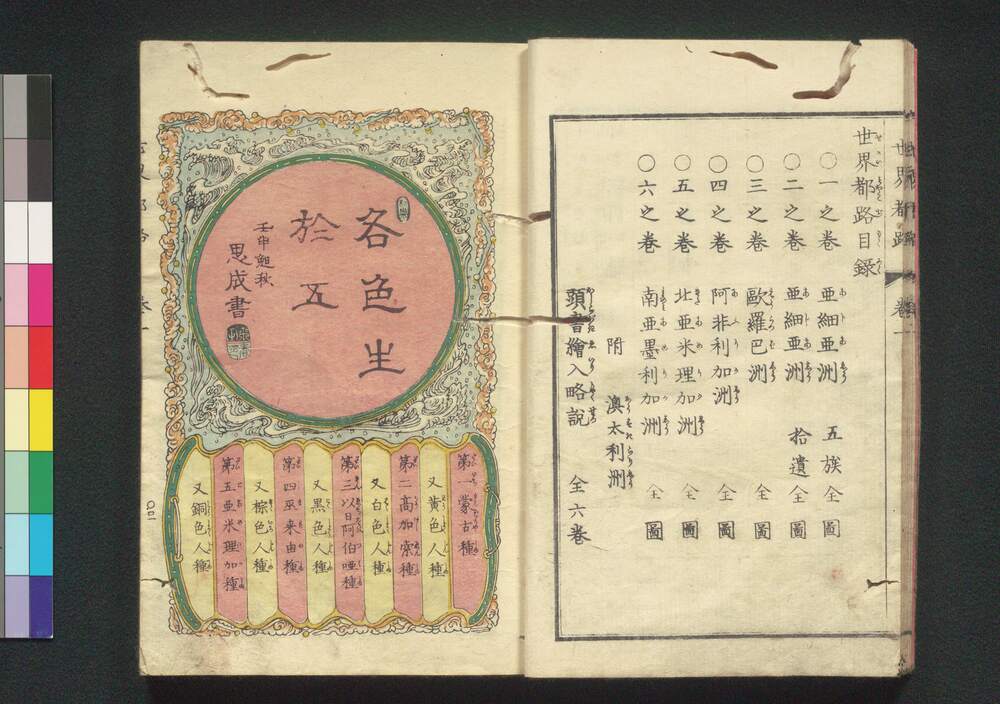 世界都路 巻一
世界都路目録
○一之巻 亜細亜洲 五族 仝 圖
○二之巻 亜細亜洲 拾遺 仝 圖
○三之巻 歐羅巴洲 仝 圖
○四之巻 阿非利加洲 仝 圖
○五之巻 北亜米理加洲 仝 圖
○六之巻 南亜墨利加洲 仝 圖
附 澳太利洲
頭書繪入略説 全六巻
各色生
於五
壬申 秋
思成書
第一蒙古種
又黄色人種
第二高加索種
又白色人種
第三以日阿伯唖種
又黒色人種
第四巫来由種
又棕色人種
第五亜米理加種
又銅色人種